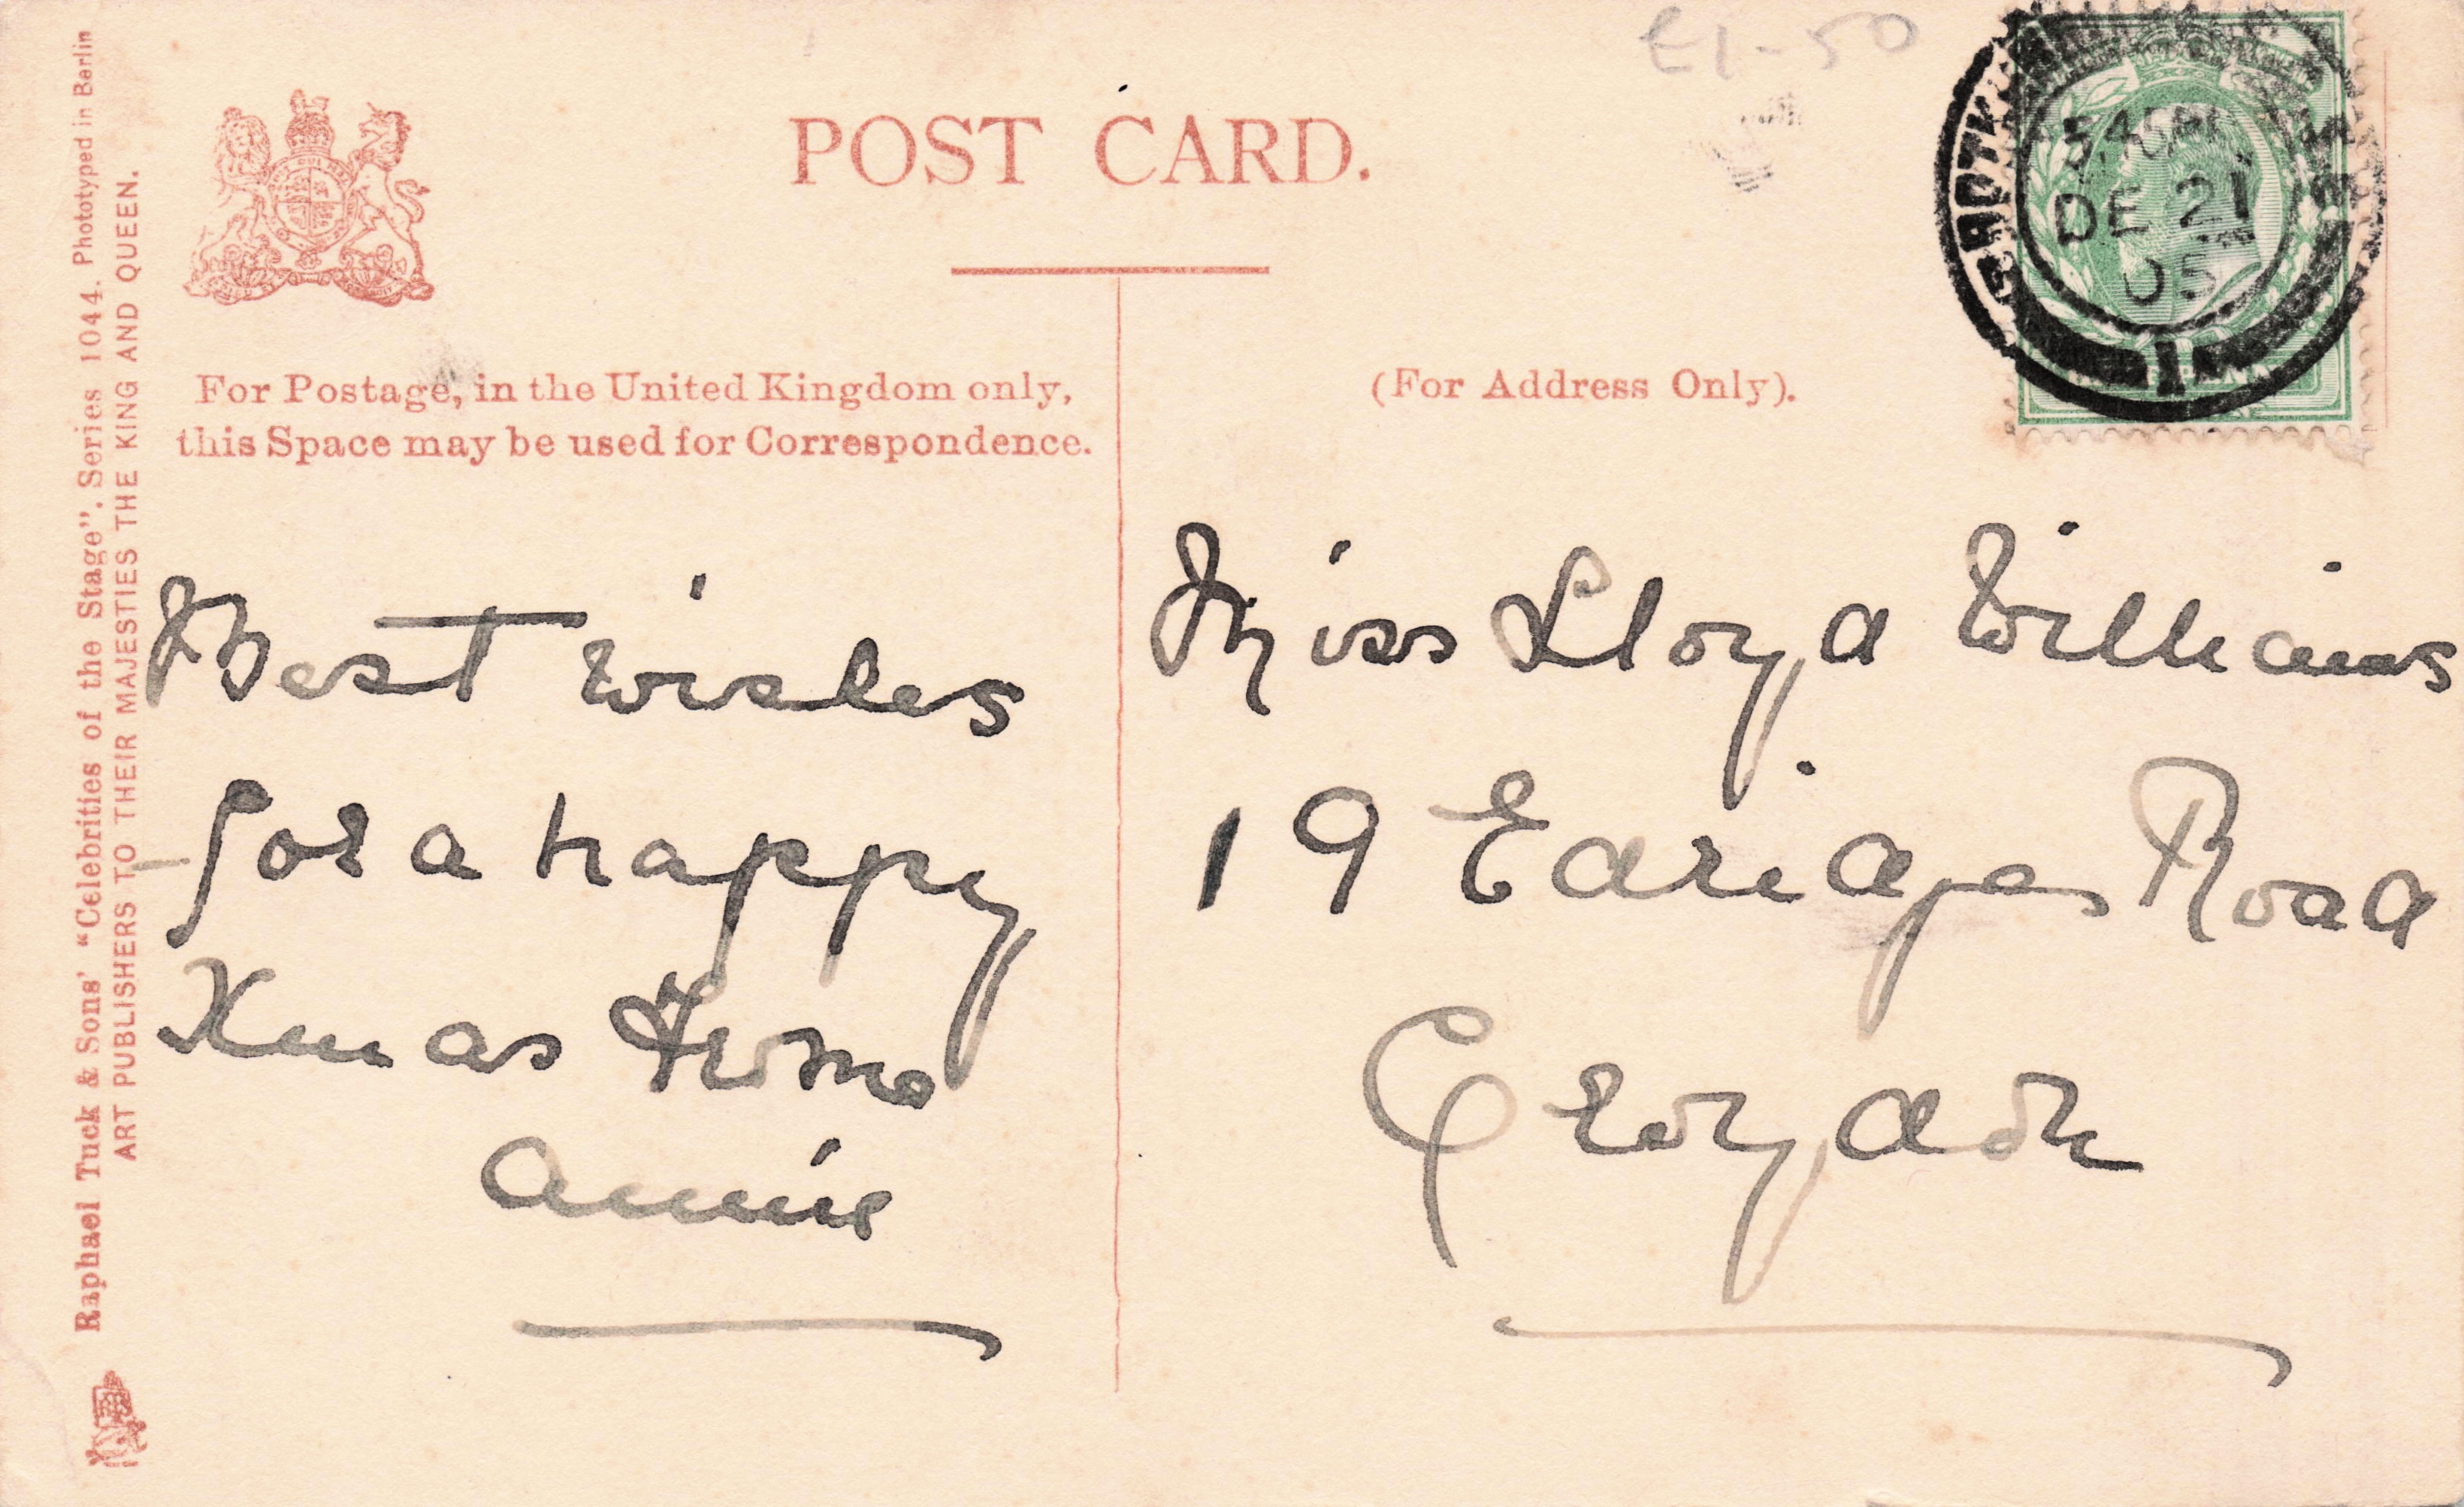 POST CARD.
£1-50
5.45 PM
DE 21
05
1
For Postage, in the United Kingdom only,
this Space may be used for Correspondence.
(For Address Only).
Best wishes
for a happy
Xmas from
Annie
Miss Lloyd Williams
19 Edridge Road
Croydon
Raphael Tuck & Sons' "Celebrities of the Stage". Series 1044. Phototyped in Berlin
ART PUBLISHERS TO THEIR MAJESTIES THE KING AND QUEEN.